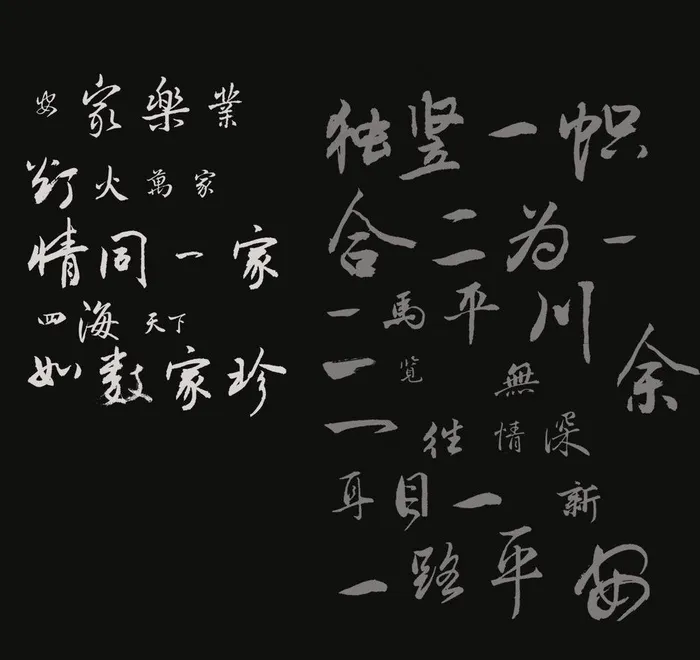 安家樂業
灯火萬家
情同一家
四海天下
如数家珍
独竖一帜
合二为一
一馬平川
一覧無余
一往情深
耳目一新
一路平安